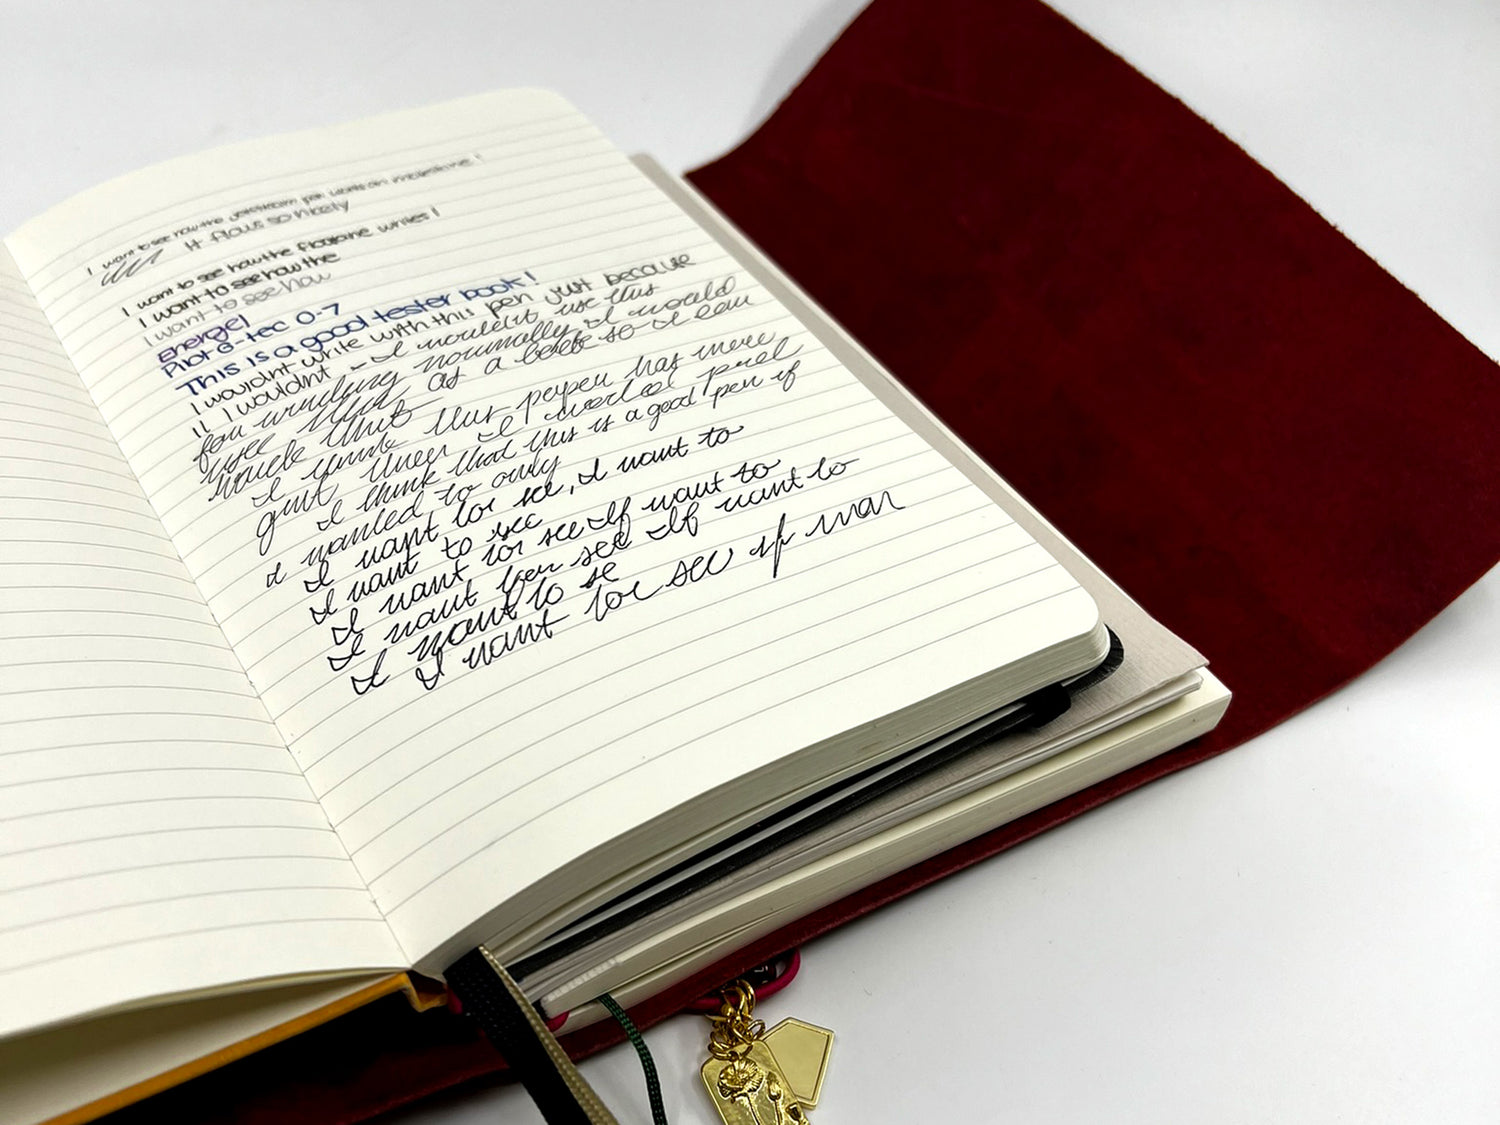 I want to see how the jetstream pen works on moleskine!
It flows so nicely
I want to see how the flogiane writes!
I want to see how the
I want to see how
Energel
Pilot G-tec 0.7
This is a good tester book!
I wouldnt write with this pen just because
I wouldnt - I wouldn't use this
for writing normally I would
use this as a so I can
made that
I think this paper has more
but then I would
I think that this is a good pen if
I wanted to only
I want for see, I want to
I want to see
I want for see If want to
I want for see If want to
I want to se
I want for see if wan